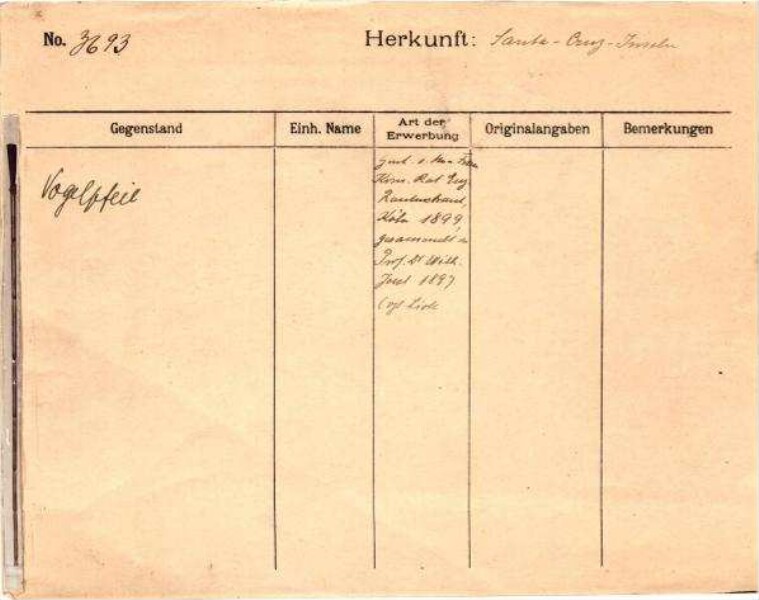 No. 3693 Herkunft: Santa-Cruz-Inseln
Gegenstand Einh. Name Art der Erwerbung Originalangaben Bemerkungen
Vogelpfeil
Gesch. v. Frau
Kom. Rat Eug.
Rautenstrauch,
Köln 1899,
gesammelt v.
Prof. Dr Wilh.
Joest 1897
(vgl. Liste